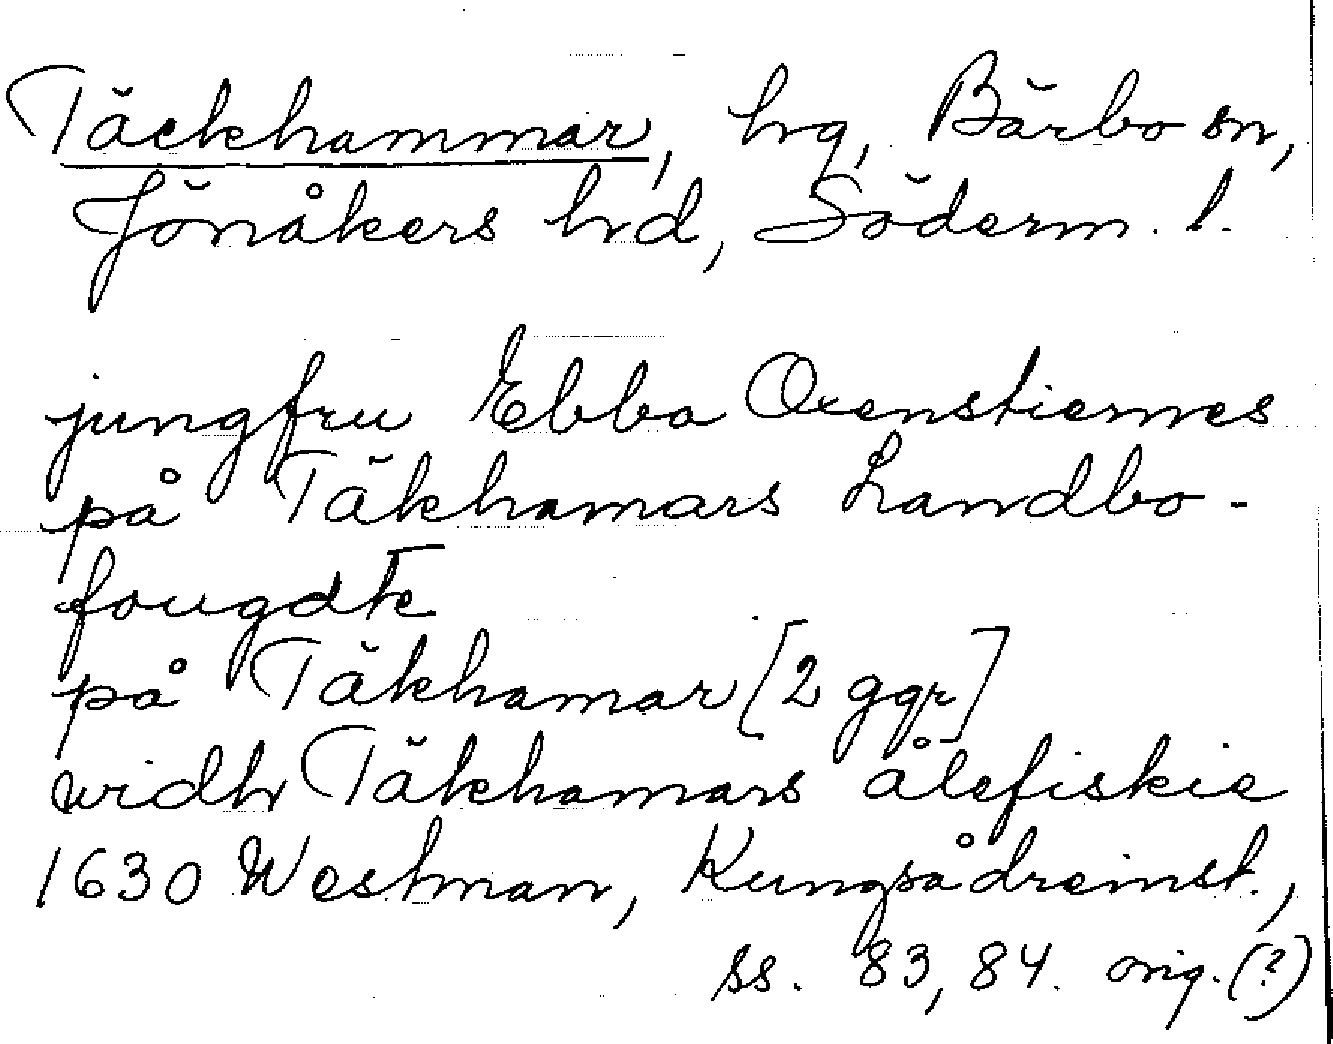 Täckhammar, hrg, Bärbo sn,
Jönåkers hrd, Söderm. l.
jungfru Ebba Oxenstiernes
på Täkhamars Landbo-
fougdte
på Täkhamar [2 ggr]
widh Täkhamars ålefiskie
1630 Westman, Kungsådreinst.,
ss. 83, 84. orig. (?)